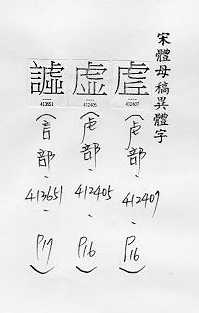 宋體母稿異體字
虗
412407
(虍部、412407、P16)
虚
412405
(虍部、412405、P16)
譃
413651
(言部、413651、P17)